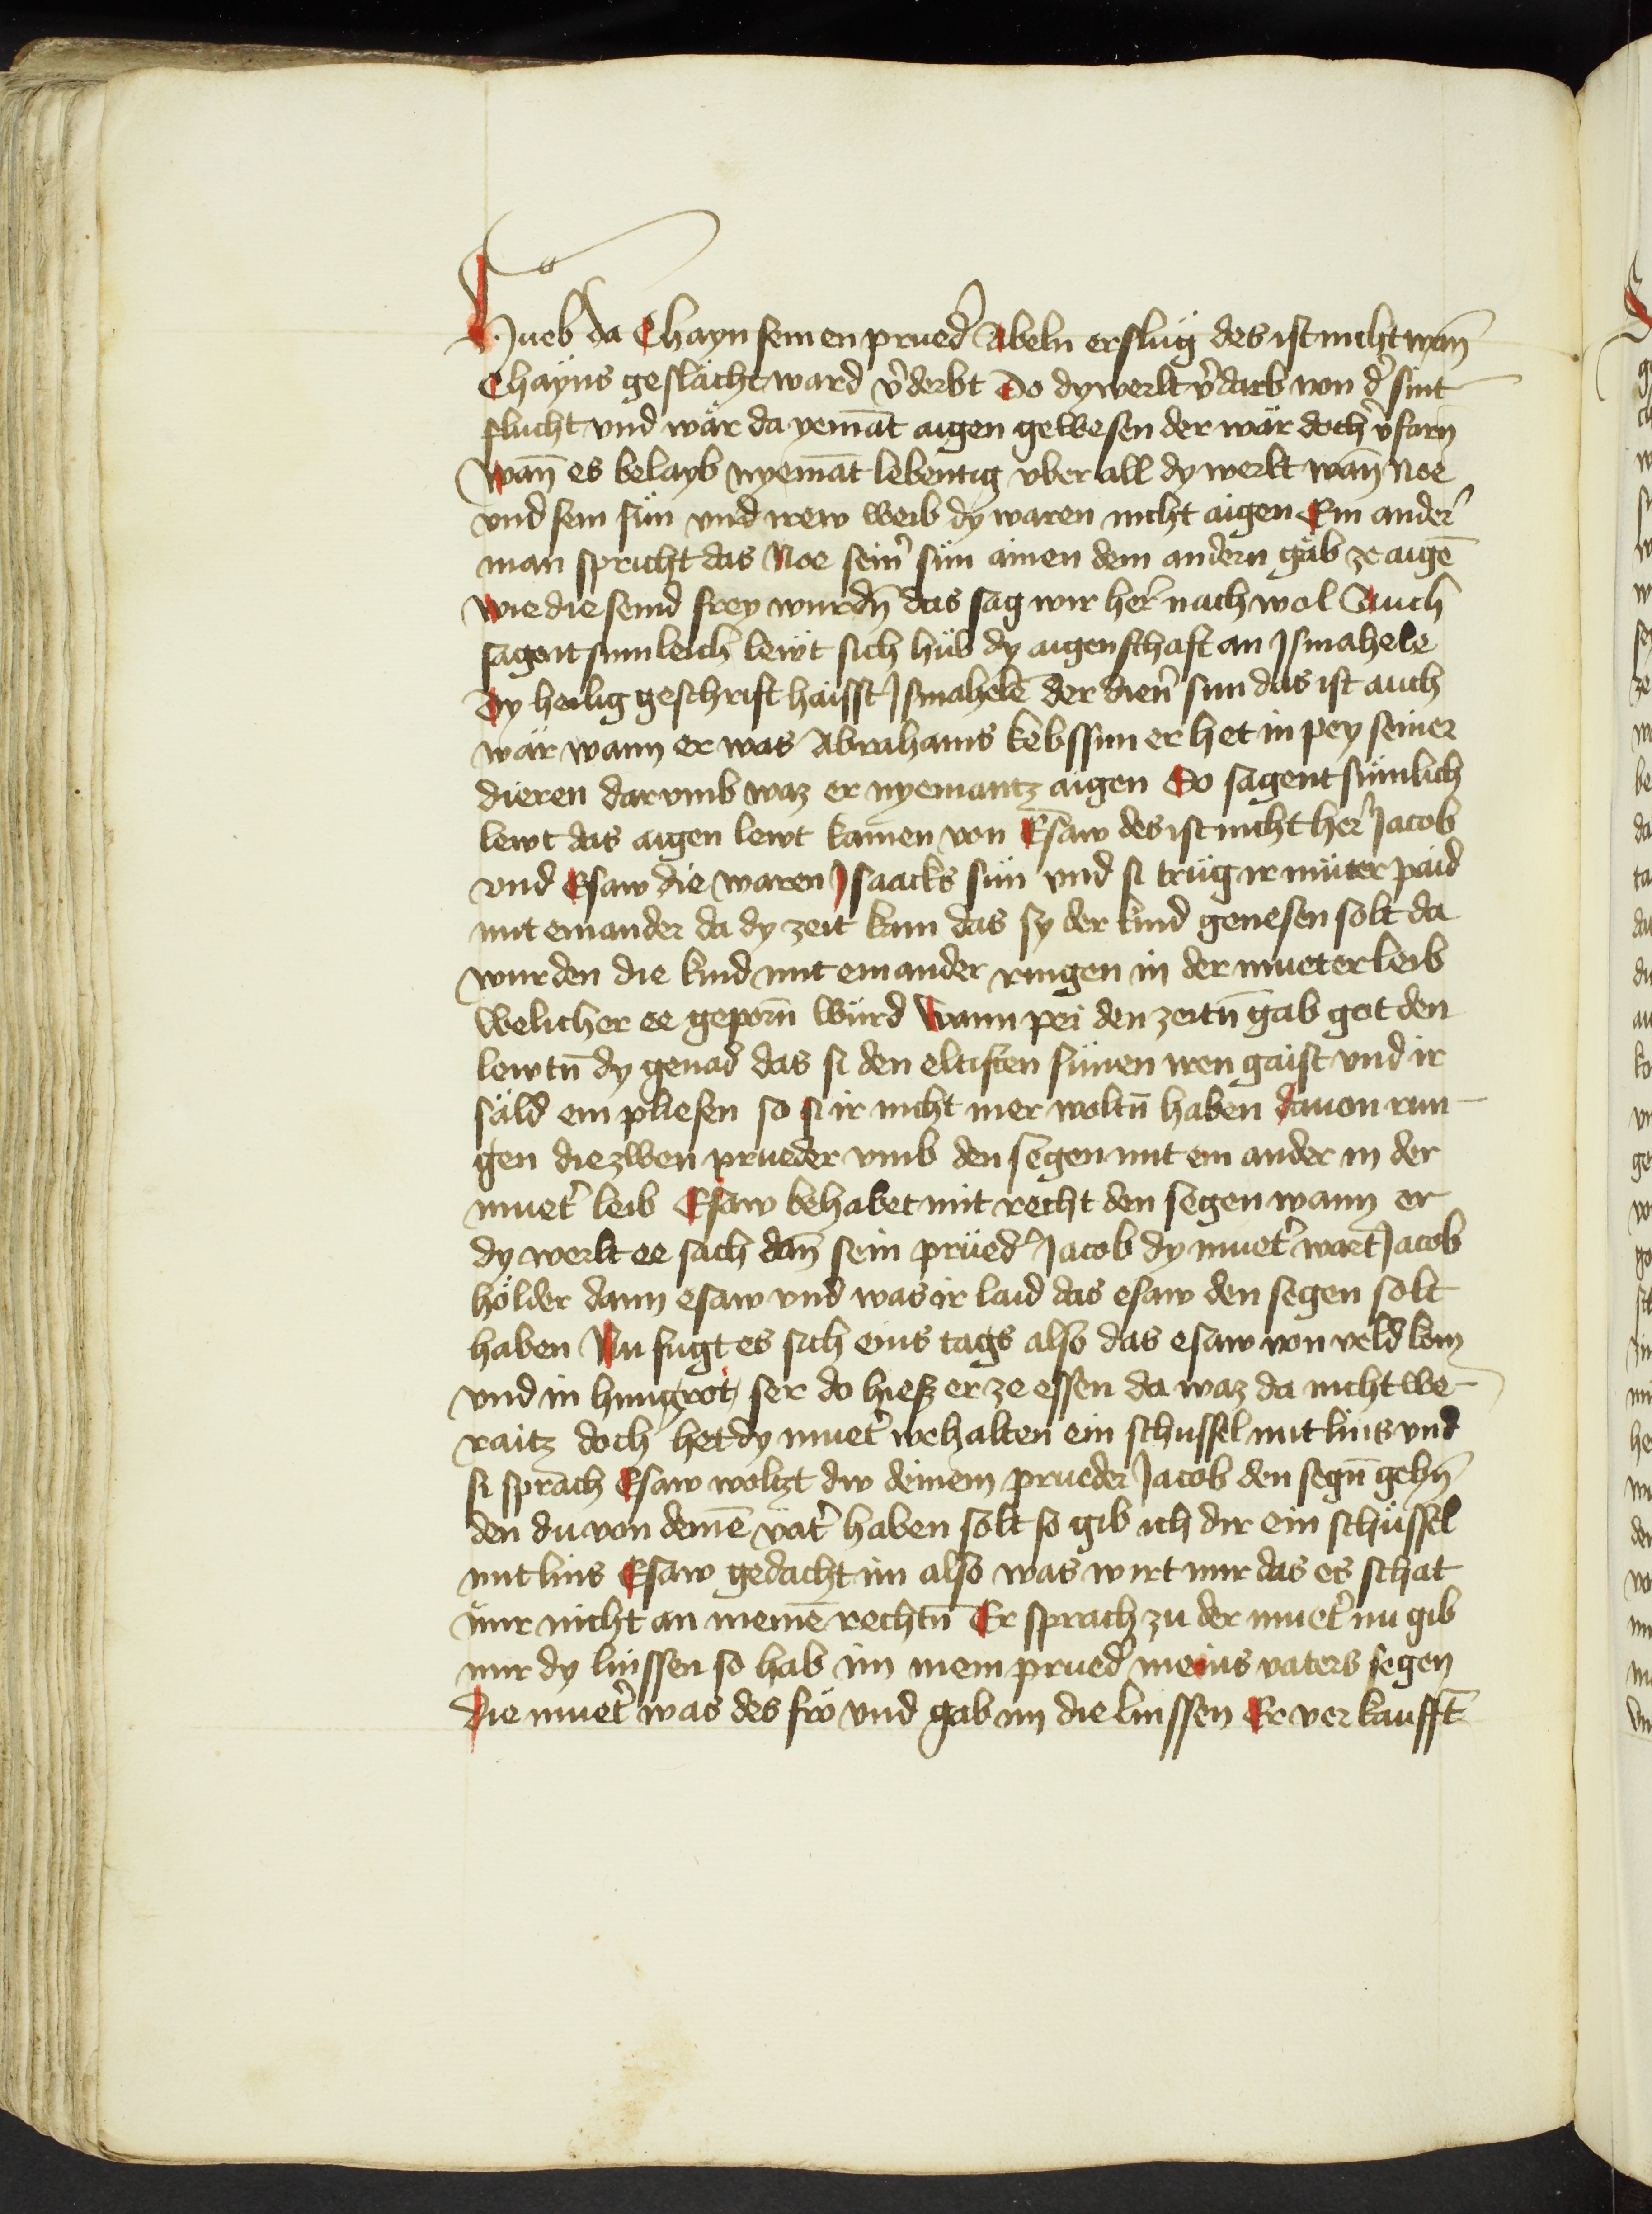 Hueb da Chayn seinen prued̉ Abeln erslůg des ist nicht wan̄
Chayns geslächt ward v̉derbt Do dy werlt v̉darb von d̉ sint
flucht vnd wär da yemāt aigen gewesen der wär doch v̉farn̄
wan̄ es belayb nyemāt lebentig vber all dy werlt wan̄ Noe
vnd sein sün vnd irew weib dy waren nicht aigen Ein ander̉
man spricht das Noe sein̉ sün ainen dem andern gäb ze aigē
wie die seind frey wurdn̄ das sag wir her̉ nach wol Auch
sagent sumleich lewt sich hüb dy aigenschaft an Ismahele
Dy heilig geschrift haisst Ismahelē der dien̉ sun das ist auch
wär wann er was Abrahams kebssun er het in pey seiner
dieren darvmb waz er nyemantz aigen So sagent sümlich
lewt das aigen lewt kamen von Esaw des ist nicht her̉ Jacob
vnd Esaw die waren Isaacks sün vnd si trüg ir müter paid
mit einander da dy zeit kam das sy der kind genesen solt da
wurden die kind mit ein ander ringen in der mueter leib
welicher ee geporn̄ würd Wann pei den zeitn̄ gab got den
lewtn̄ dy genad das si den eltisten sünen iren gaist vnd ir
säld ein pliesen so si ir nicht mer woltn̄ haben dauon run-
gen die zwen prueder vmb den segen mit ein ander in der
muet̉ leib Esaw behabet mit recht den segen wann er
dy werlt ee sach dan̄ sein prüed̉ Jacob dy muet̉ wart Jacob
hölder dann esaw vnd was ir laid das esaw den segen solt
haben Nu fugt es sich eins tags also das esaw von veld kom
vnd in hungrot ser do hiesz er ze essen da waz da nicht we-
raitz doch het dy muet̉ wehalten ein schussel mit lins vnd
si sprach Esaw woltzt dw deinem prueder Jacob den segn̄ gebn̄
den du von deinē vat̉ haben solt so gib ich dir ein schüssel
mit lins Esaw gedacht im also was wirt mir das es schat
mir nicht an meinē rechtn̄ Er sprach zu der muet̉ nu gib
mir dy linssen so hab im mein prued̉ meins vaters segen
die muet̉ was des frö vnd gab im die linssen Er verkaufft